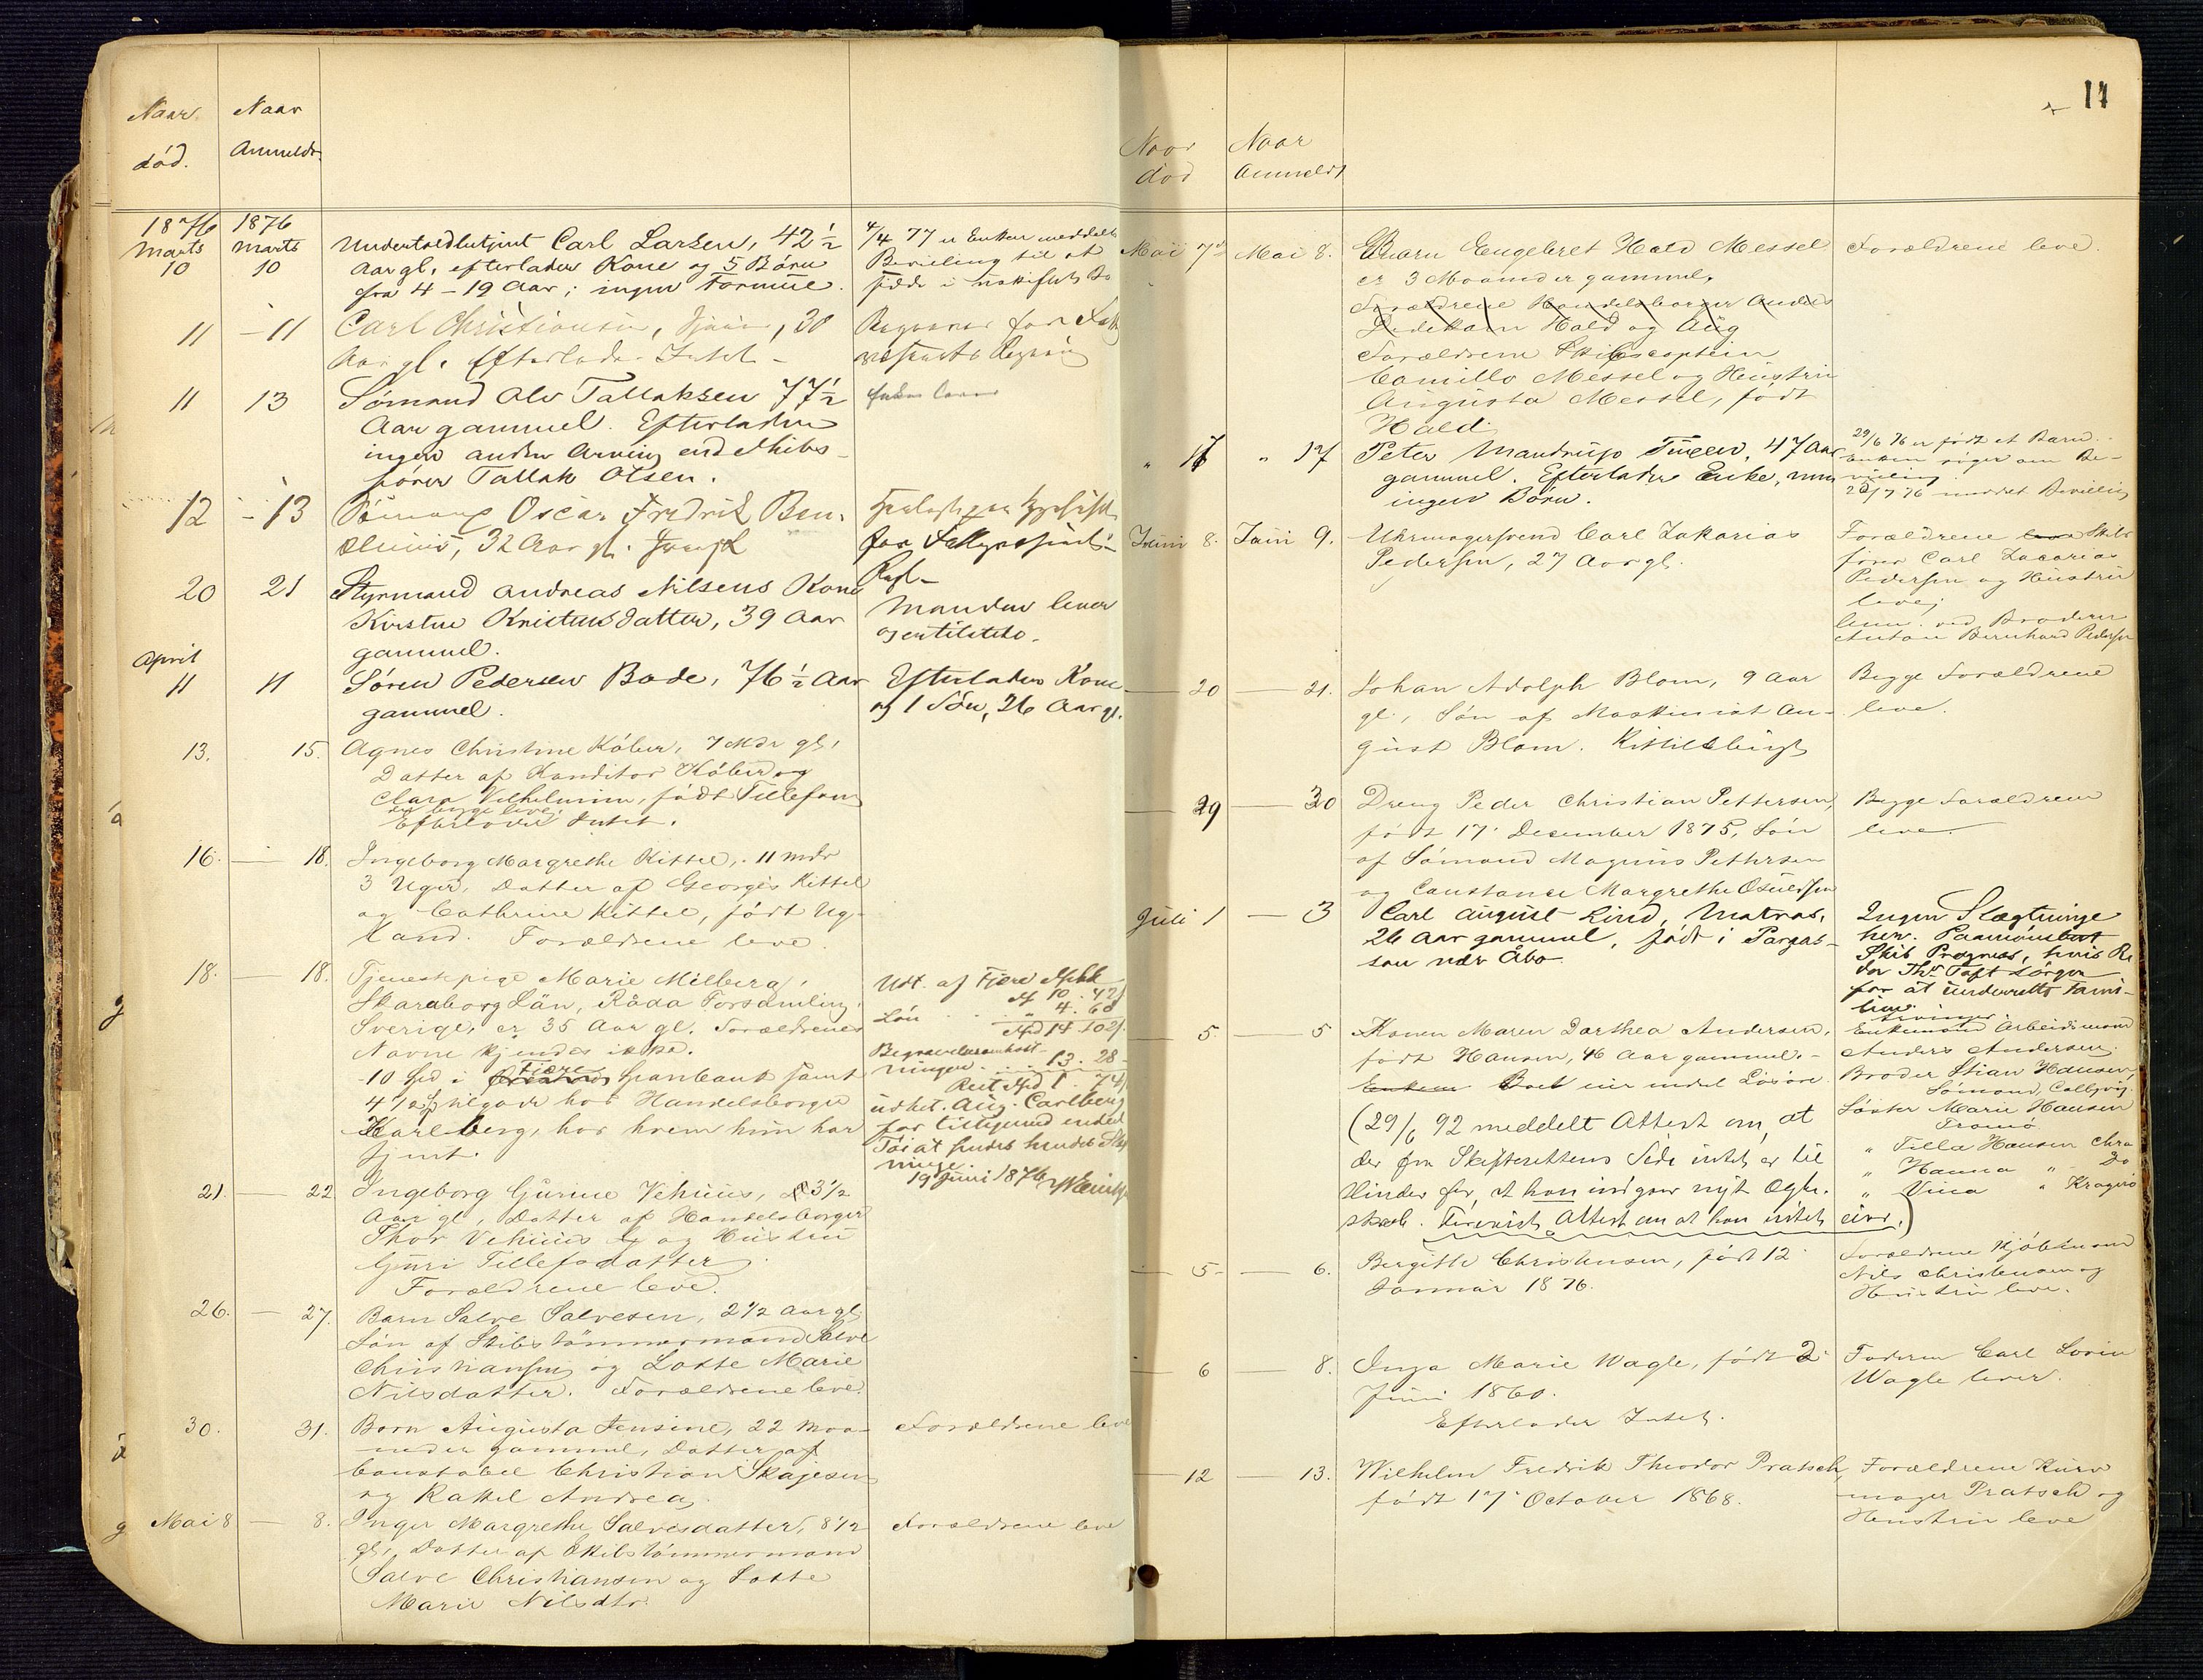 Naar
død.
Naar
Anmeldt
1876
Marts
10
1876
Marts
10
Undertoldbetjent Carl Larsen, 42½
Aar gl., efterlader Kone og 5 Børn
fra 4–19 Aar; ingen Formue.
4/4 77 er Enken meddelt
Bevilling til at
sidde i uskiftet Bo
11 – 11
Carl Christiansen, 30
Aar gl. Efterlader Intet –
11 13
Sømand Alv Tallaksen 77½
Aar gammel. Efterlader
ingen anden Arving end Skibs-
fører Tallak Olsen.
12 – 13
Oscar Fredrik
32 Aar gl.
20 21
Styrmand Andreas Nilsens Kone
Kirstine Kristensdatter, 39 Aar
gammel.
Manden lever
April
11 11
Søren Pedersen Bode, 76½ Aar
gammel.
Efterlader Kone
og 1 Søn, 26 Aar gl.
13. 15.
Agnes Christine Köber, 7 Mdr gl,
Datter af Konditor Köber og
Clara Vilhelmine, født Tellefsen
der begge leve.
Efterlader Intet.
16. – 18.
Ingeborg Margrethe Kittel, 11 mdr
3 Uger, Datter af Georgis Kittel
og Cathrine Kittel, født Ug-
land. Forældrene leve.
18. – 18.
Tjenestepige Marie Milberg,
Skaraborg Län, Råda Forsamling,
Sverige, er 35 Aar gl. Forældrenes
Navne kjendes ikke.
10 Spd i Fjære Sparebank samt
4½ Sp tilgode hos Handelsborger
Karlberg, hos hvem hun har
tjent.
Udt. af Fjære Spbk
10. 42
Løn 4. 60
Spd 14. 102
Begravelsesomkost-
ninger 13. 28
Rest Spd 1. 74
udbet. Aug. Carlberg
for tilligemed endel
Tøi at sendes hendes Slægt-
ninge.
19 Juni 1876
21. – 22
Ingeborg Gurine Vehuus, 3½
Aar gl, Datter af Handelsborger
Thor Vehuus og Hustru
Guri Tellefsdatter
Forældrene leve.
26. – 27.
Barn Salve Salvesen, 2½ Aar gl.
Søn af Skibstömmermand Salve
Christiansen og Lotte Marie
Nilsdatter. Forældrene leve.
30. 31.
Barn Augusta Jensine, 22 Maa-
neder gammel, Datter af
Constabel Christian Skajesen
og Rakkel Andrea
Forældrene leve
Mai 8 – 8.
Inger Margrethe Salvesdatter, 8½
gl, Datter af Skibstömmermand
Salve Christiansen og Lotte
Marie Nilsdtr
Forældrene leve
11
Naar
død
Naar
Anmeldt
Mai 7de Mai 8.
Barn Engebret Hald Messel
er 3 Maaneder gammel,
Forældrene Handelsborger Anders
Hald og Aug
Forældrene Skibscaptein
Camillo Messel og Hustru
Augusta Messel, født
Hald.
Forældrene leve.
" 17 " 17
Peter Mandrup Tuxen, 47 Aar
gammel. Efterlader Enke, men
ingen Børn.
29/6 76 er født et Barn.
Enken søger om Be-
villing.
Juni 8. Juni 9.
Uhrmagersvend Carl Zakarias
Pedersen, 27 Aar gl.
Forældrene leve Skibs
fører Carl Zacarias
Pedersen og Hustru
leve;
ved Broderen
Anton Bernhard Pedersen
– 20 – 21.
Johan Adolph Blom, 9 Aar
gl., Søn af Maskinist Au-
gust Blom. Kittilsbugt
Begge Forældrene
leve.
– 29 – 30
Dreng Peder Christian Pettersen,
født 17. December 1875, Søn
af Sømand Magnus Pettersen
og Constance Margrethe Osuldsen
Begge Forældrene
leve.
Juli 1 – 3
Carl August Lind, Matros,
26 Aar gammel, født i Pargas-
sou nær Åbo
Ingen Slægtninge
her. Paamönstret
Skib Prognos, hvis Re
der Ths Toft sørger
for at underrette Fami-
lien.
5. – 5
Konen Maren Dorthea Andersen,
født Hansen, 46 Aar gammel. –
Enken Boet eier endel Løsøre
Arvinger:
Enkemand Arbeidsmand
Anders Andersen.
Broder Stian Hansen,
Sømand, Colbjvig.
Søster Marie Hansen
Tromö
" Tilla Hansen Chra
" Hanna " Do
" Vina " Kragerö
(29/6 92 meddelt Attest om, at
der fra Skifterettens Side intet er til
Hinder for, at han indgaar nyt Ægte-
skab. Forevist Attest om at han intet eier.)
– 5 – 6.
Bergitte Christensen, født 12
Januar 1876.
Forældrene Kjøbmand
Nils Christensen og
Hustru leve.
– 6 – 8.
Inga Marie Wagle, født 2
Juni 1860.
Efterlader Intet.
Faderen Carl Lorin
Wagle lever.
– 12 – 13.
Wilhelm Fredrik Theodor Pratsch,
født 17. October 1868.
Forældrene Kurv
mager Pratsch og
Hustru leve